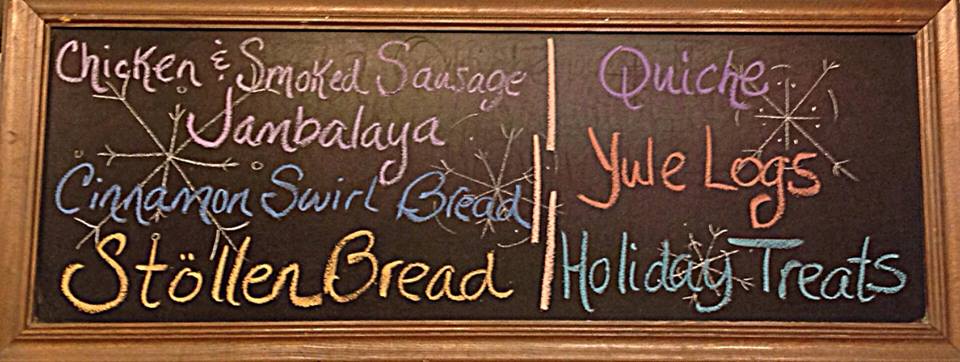 Chicken & Smoked Sausage
Jambalaya
Cinnamon Swirl Bread
Stöllen Bread
Quiche
Yule Logs
Holiday Treats